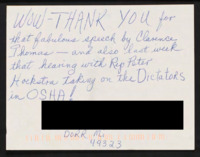 WOW-THANK YOU for
that fabulous speech by Clarence
Thomas — and also last week
that hearing with Rep Peter
Hoekstra taking on the Dictators
in OSHA!
Dorr, Mi.
49323